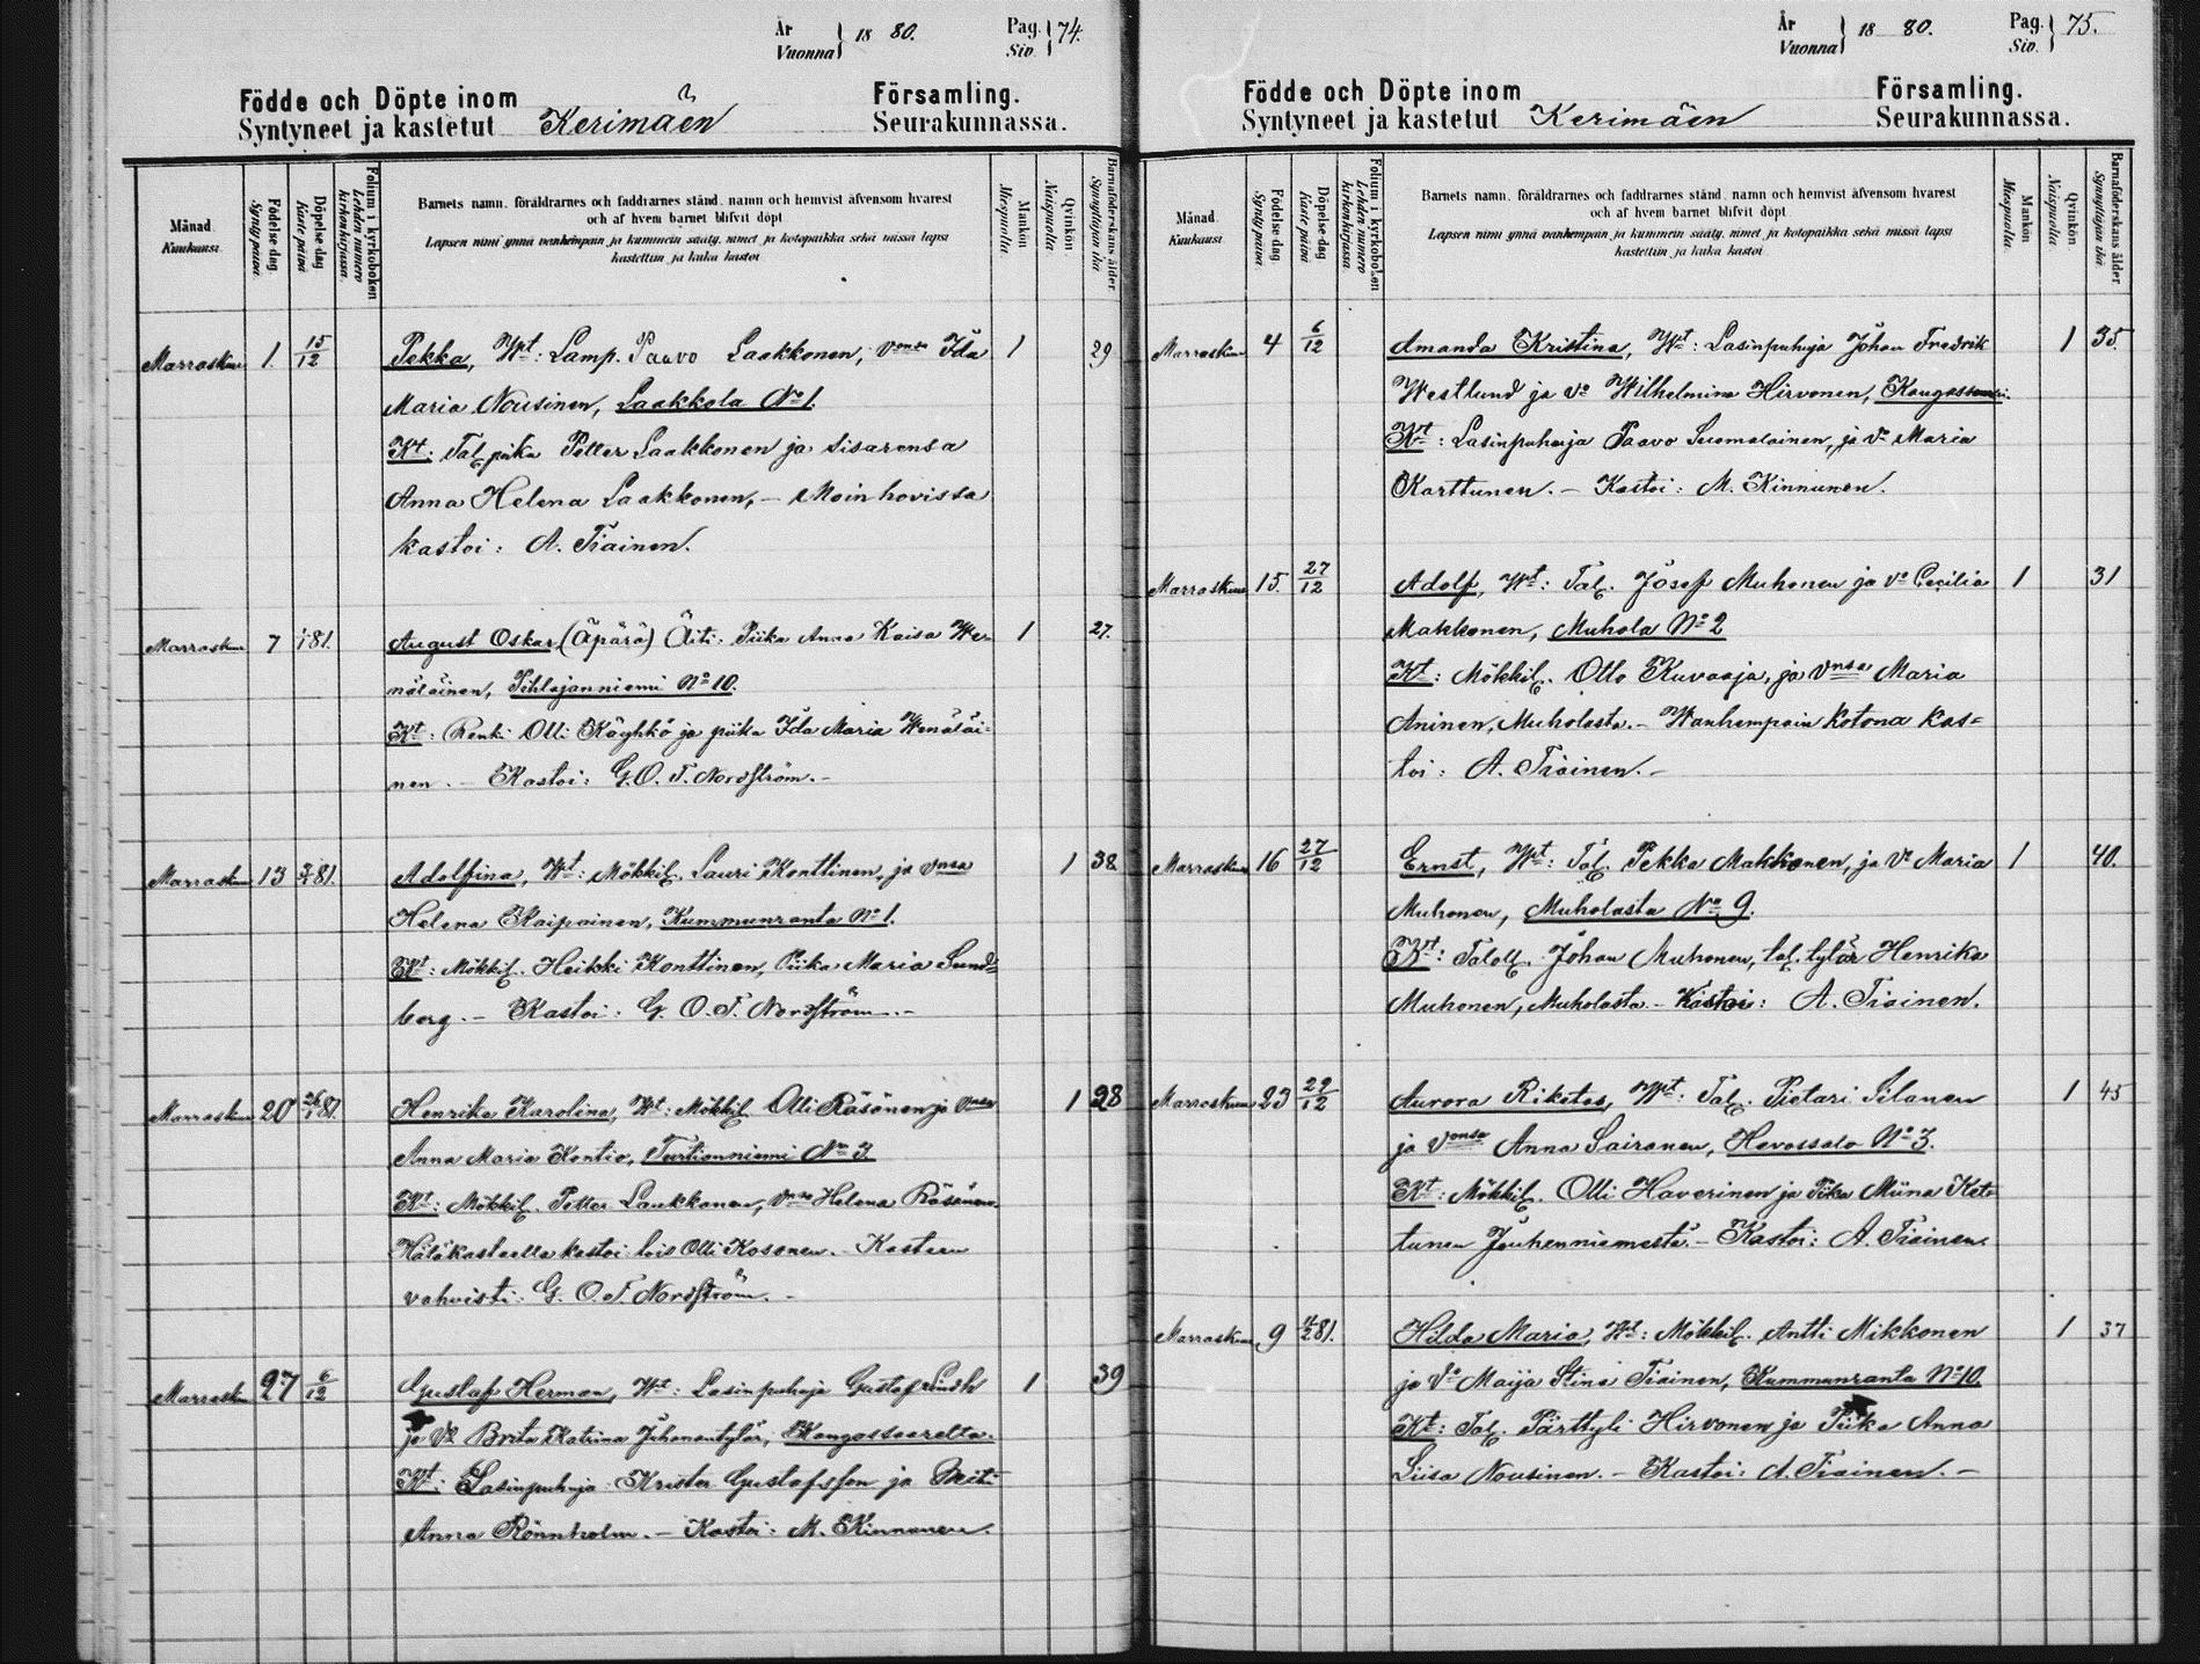 År
Vuonna } 18 80.
Pag.
Siv. } 74.
Födde och Döpte inom
Syntyneet ja kastetut Kerimäen
Församling.
Seurakunnassa.
Månad
Kuukausi
Födelse dag
Synty päivä
Döpelse dag
Kaste päivä
Folium i kyrkoboken
Lehden numero kirkonkirjassa.
Barnets namn, föräldrarnes och faddrarnes stånd, namn och hemvist äfvensom hvarest
och af hvem barnet blifvit döpt
Lapsen nimi ynnä vanhempain ja kummein sääty, nimet ja kotopaikka sekä missä lapsi
kastettiin ja kuka kastoi
Mankön
Miespuolta
Qvinkön
Naispuolta
Barnaföderskans ålder
Synnyttäjän ikä
Marraskuu 1. 15/12 Pekka, Wt: Lamp. Paavo Laakkonen, vonsa Ida 1 29
Maria Nousinen, Laakkola No 1.
Kt: Tal. poika Petter Laakkonen ja sisarensa
Anna Helena Laakkonen, – Moinhovissa
kastoi: A. Tiainen.
Marraskuu 7 81. August Oskar (Äpärä) Äiti: Piika Anna Kaisa We- 1 27.
näläinen, Pihlajanniemi No 10.
Kt: Renki Olli Käyhkö ja piika Ida Maria Wenäläi-
nen. – Kastoi: G. O. F. Nordström. –
Marraskuu 13 81. Adolfina, Wt: Mökkil. Lauri Konttinen, ja vnsa 1 38
Helena Kaipainen, Kummunranta No 1.
Kt: Mökkil. Heikki Konttinen, Piika Maria Sund-
berg. – Kastoi: G. O. F. Nordström. –
Marraskuu 20 26/1 81. Henrika Karolina, Wt: Mökkil. Olli Räsänen ja vnsa 1 28
Anna Maria Kontio, Turtianniemi No 3.
Kt: Mökkil. Petter Laukkanen, vnsa Helena Räsänen.
Hätäkasteella kastoi lois Olli Kosonen. – Kasteen
vahvisti G. O. F. Nordström. –
Marraskuu 27 6/12 Gustaf Herman, Wt: Lasinpuhaja Gustaf Lindh 1 39
ja Vo Brita Katrina Juhanantytär, Kangassaarelta.
Kt: Lasinpuhaja Krister Gustafsson ja Neiti
Anna Rönnholm. – Kastoi: M. Kinnunen.
År
Vuonna } 18 80.
Pag.
Siv. } 75.
Födde och Döpte inom
Syntyneet ja kastetut Kerimäen
Församling.
Seurakunnassa.
Månad
Kuukausi
Födelse dag
Synty päivä
Döpelse dag
Kaste päivä
Folium i kyrkoboken
Lehden numero kirkonkirjassa
Barnets namn, föräldrarnes och faddrarnes stånd, namn och hemvist äfvensom hvarest
och af hvem barnet blifvit döpt
Lapsen nimi ynnä vanhempain ja kummein sääty, nimet ja kotopaikka sekä missä lapsi
kastettiin ja kuka kastoi
Mankön
Miespuolta
Qvinkön
Naispuolta
Barnaföderskans ålder
Synnyttäjän ikä
Marraskuu 4 6/12 Amanda Kristina, Wt: Lasinpuhuja Johan Fredrik 1 35.
Westlund ja Vo Wilhelmina Hirvonen,
Kt: Lasinpuhuja Paavo Suomalainen, ja Vo Maria
Karttunen. – Kastoi: M. Kinnunen.
Marraskuu 15. 27/12 Adolf, Wt: Tal. Josef Muhonen ja Vo Cecilia 1 31
Makkonen, Muhola No 2
Kt: Mökkil. Otto Kuvaaja, ja Vnsa Maria
Aninen, Muholasta. – Wanhempain kotona kas-
toi: A. Tiainen. –
Marraskuu 16 27/12 Ernst, Wt: Tal. Pekka Makkonen, ja Vo Maria 1 40.
Muhonen, Muholasta No 9.
Kt: Taloll. Johan Muhonen, tal. tytär Henrika
Muhonen, Muholasta. – Kastoi: A. Tiainen.
Marraskuu 23 29/12 Aurora Riketes, Wt: Tal. Pietari Silanen 1 45
ja Vonsa Anna Sairanen, Hevossalo No 3.
Kt: Mökkil. Olli Haverinen ja Piika Miina Ket-
tunen Jouhenniemestä. – Kastoi: A. Tiainen.
Marraskuu 9 81. Hilda Maria, Wt: Mökkil. Antti Mikkonen 1 37
ja Vo Maija Stina Tiainen, Kummunranta No 10.
Kt: Tal. Pärttyli Hirvonen ja Piika Anna
Liisa Nousinen. – Kastoi: A. Tiainen. –